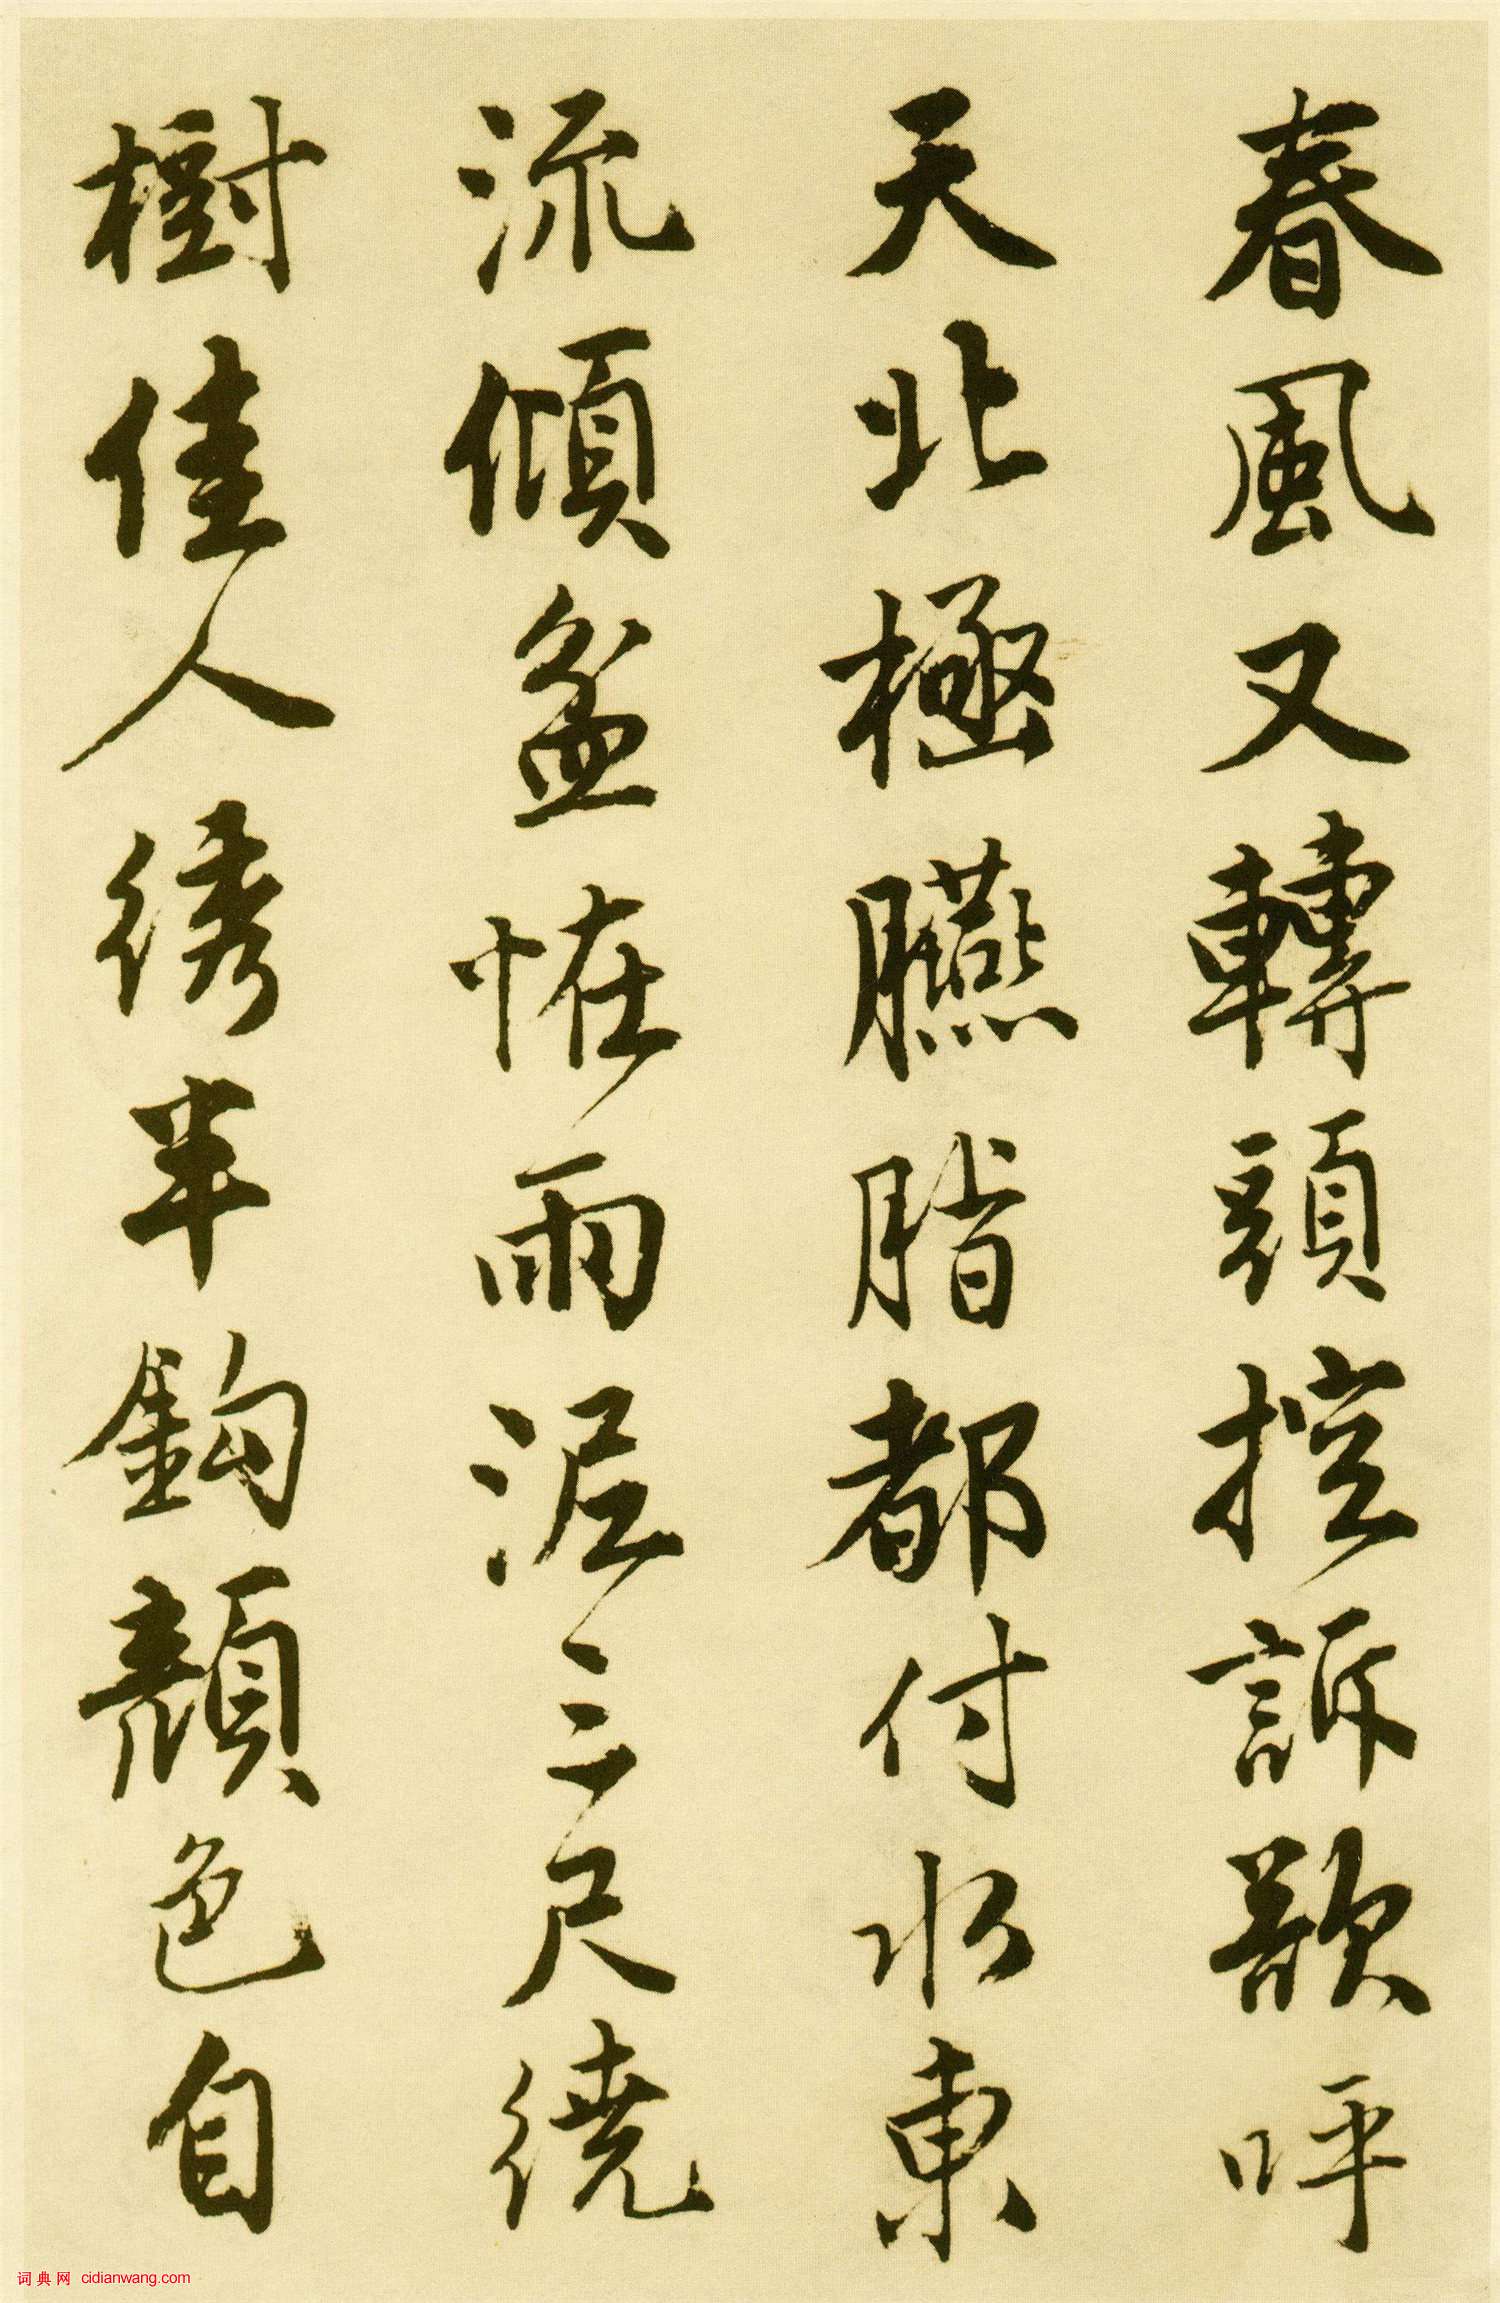 春風又轉頭控訴歎呼
天北極臙脂都付水東
流傾盆怪雨泥三尺繞
樹佳人綉半鉤顏色自
词典网 cidianwang.com